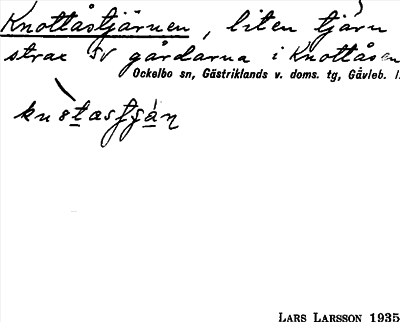 Knottåstjärnen, liten tjärn
strax SV gårdarna i Knottåsen
Ockelbo sn, Gästriklands v. doms. tg, Gävleb. l.
LARS LARSSON 1935